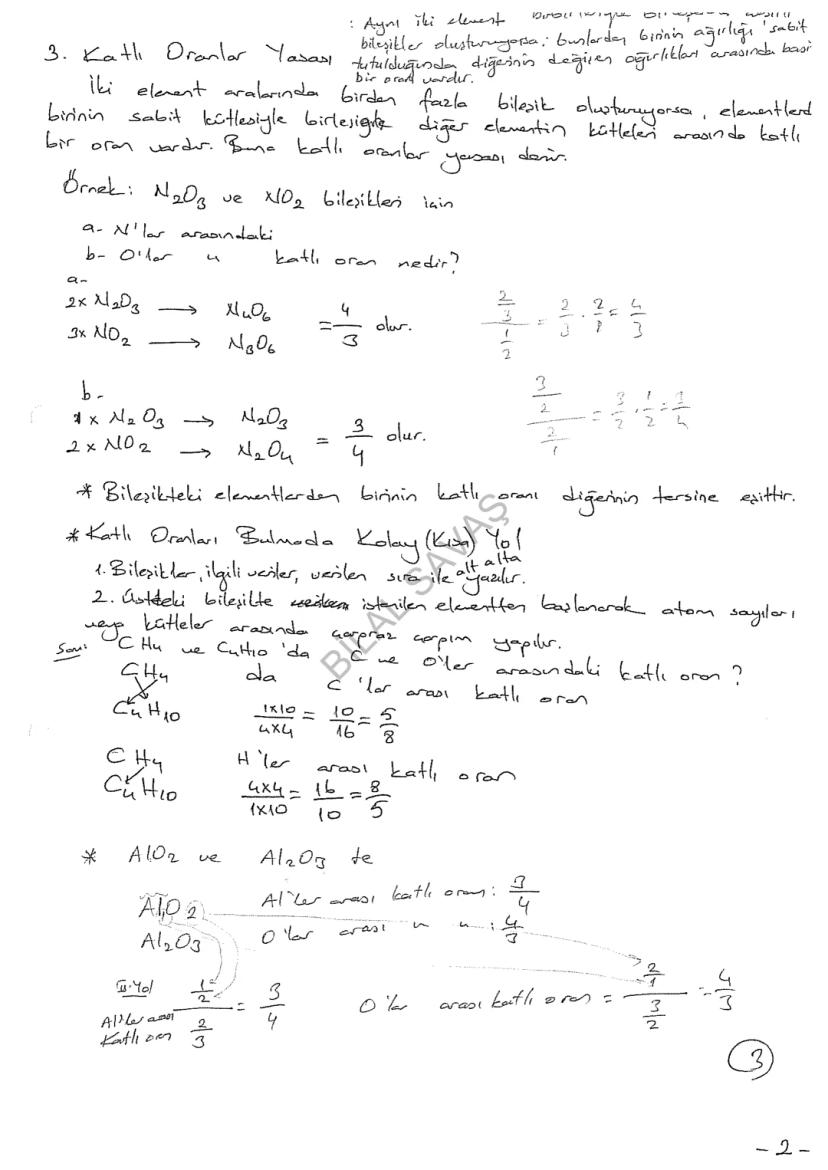 : Aynı iki element
3. Katlı Oranlar Yasası bileşikler oluşturuyorsa; bunlardan birinin ağırlığı sabit
tutulduğunda diğerinin değişen ağırlıkları arasında basi
bir oran vardır.
İki element aralarında birden fazla bileşik oluşturuyorsa, elementlerd
birinin sabit kütlesiyle birleşen diğer elementin kütleleri arasında katlı
bir oran vardır. Buna katlı oranlar yasası denir.
Örnek: N2O3 ve NO2 bileşikleri için
a- N'lar arasındaki
b- O'lar " katlı oran nedir?
a-
2x N2O3 → N4O6
3x NO2 → N3O6
= 4/3 olur.
(2/3)/(1/2) = 2/3 . 2/1 = 4/3
b-
1 x N2O3 → N2O3
2 x NO2 → N2O4
= 3/4 olur.
(3/2)/(2/1) = 3/2 . 1/2 = 3/4
* Bileşikteki elementlerden birinin katlı oranı diğerinin tersine eşittir.
* Katlı Oranları Bulmada Kolay (Kısa) Yol
1. Bileşikler, ilgili veriler, verilen sıra ile alt alta yazılır.
2. Üstteki bileşikte istenilen elementten başlanarak atom sayıları
veya kütleler arasında çarpraz çarpım yapılır.
Soru: CH4 ve C4H10 'da C ve O'ler arasındaki katlı oran?
CH4 da C 'lar arası katlı oran
C4H10 1x10/4x4 = 10/16 = 5/8
CH4 H'ler arası katlı oran
C4H10 4x4/1x10 = 16/10 = 8/5
* AlO2 ve Al2O3 te
AlO2 Al'ler arası katlı oran: 3/4
Al2O3 O'lar arası " " : 4/3
II. Yol
Al'ler arası
Katlı oran
(1/2)/(2/3) = 3/4
O'lar arası katlı oran = (2/1)/(3/2) = 4/3
3
- 2 -
BİLAL SAVAŞ